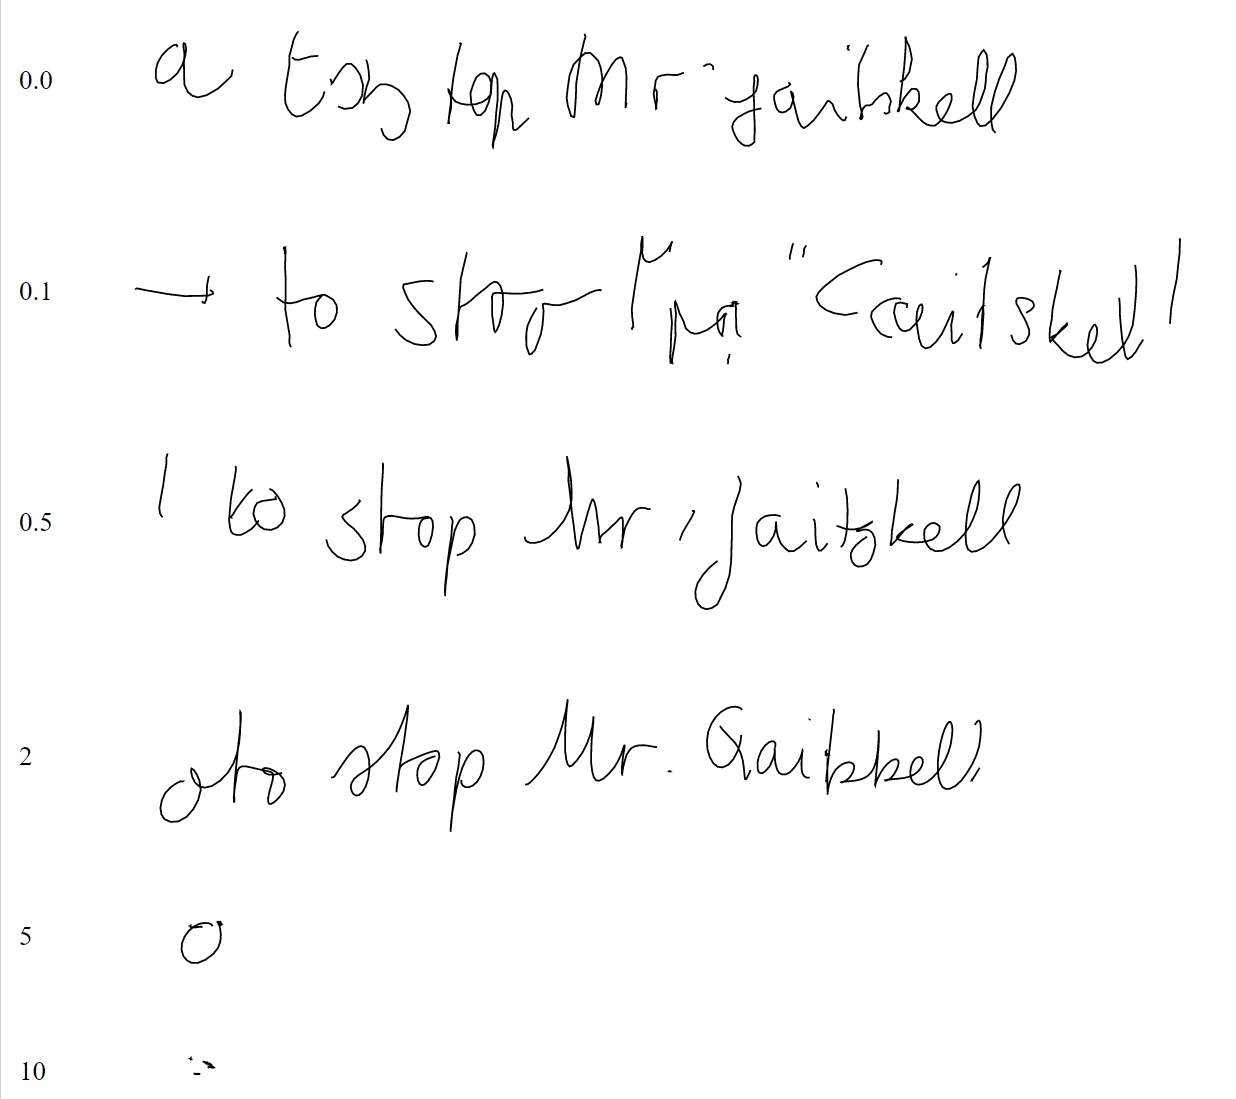 0.0 a to stop Mr Gaitskell
0.1 to stop Mr "Gaitskell
0.5 to stop Mr Gaitskell
2 to stop Mr. Gaitskell
5
10